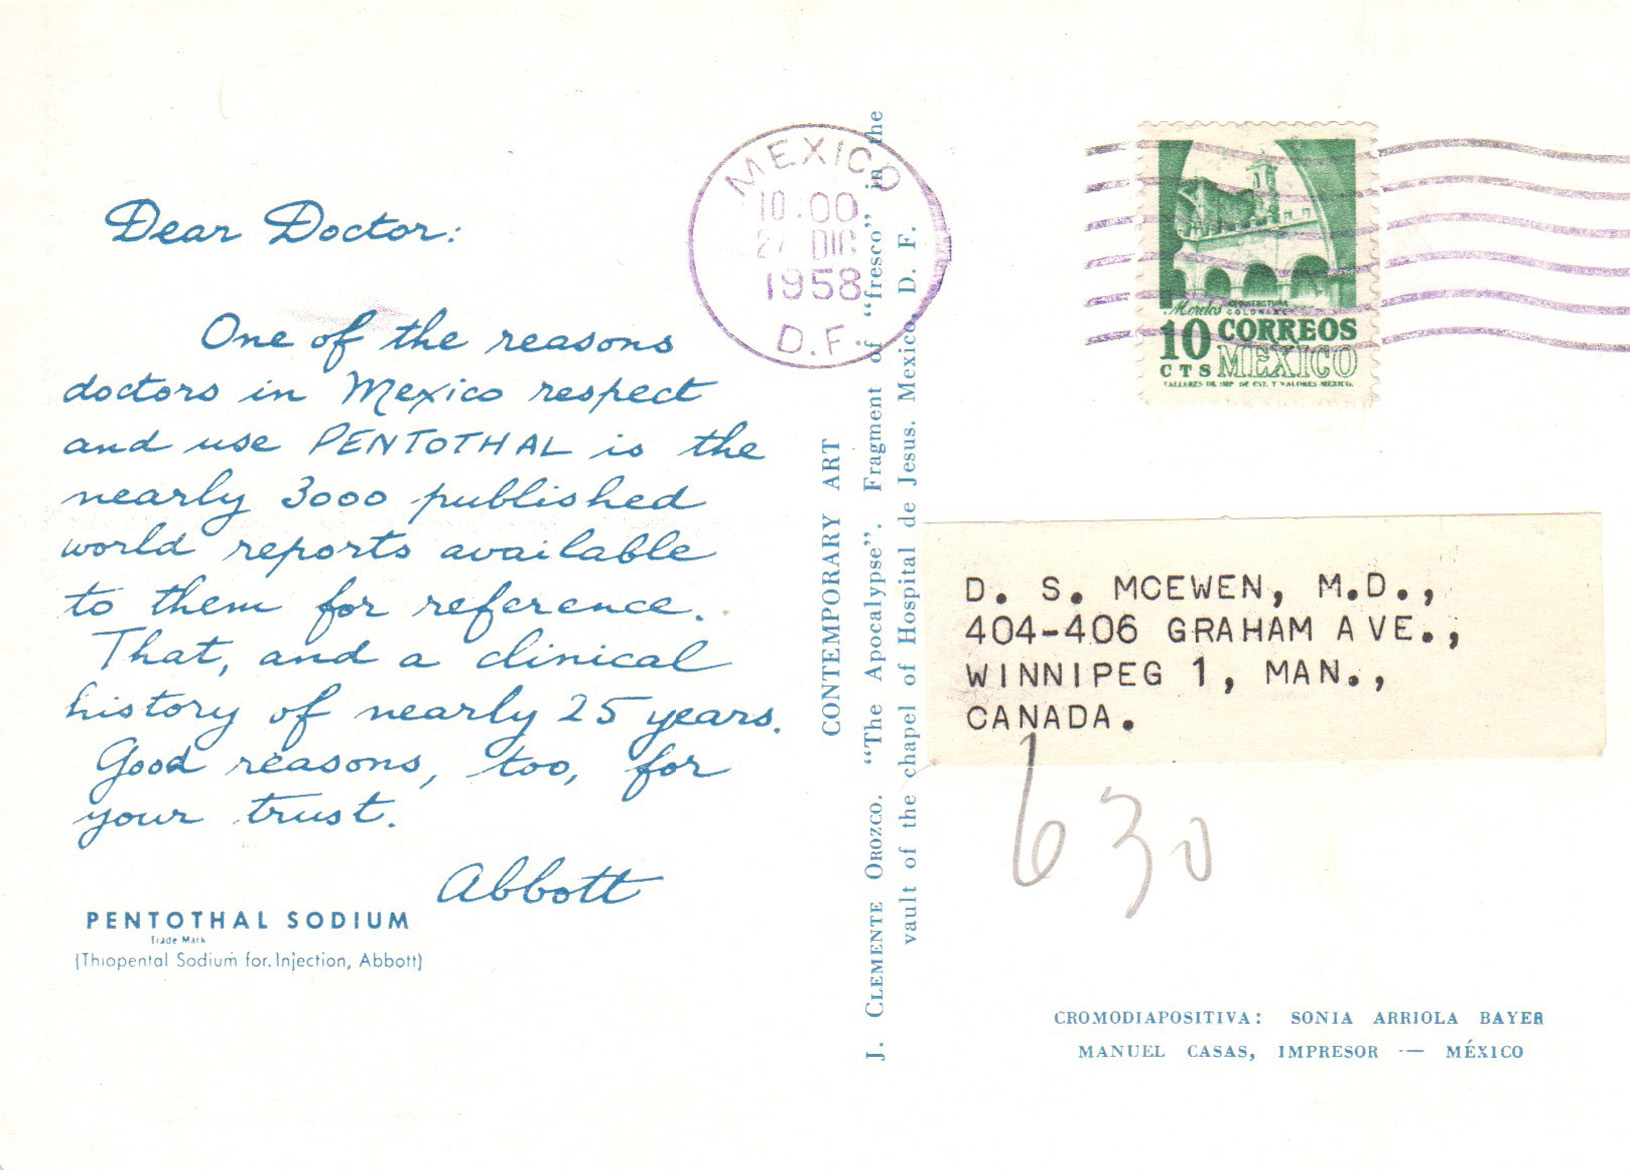 Dear Doctor:
One of the reasons
doctors in Mexico respect
and use PENTOTHAL is the
nearly 3000 published
world reports available
to them for reference.
That, and a clinical
history of nearly 25 years.
Good reasons, too, for
your trust.
Abbott
PENTOTHAL SODIUM
Trade Mark
(Thiopental Sodium for Injection, Abbott)
CONTEMPORARY ART
J. CLEMENTE OROZCO. "The Apocalypse". Fragment of "fresco" in the
vault of the chapel of Hospital de Jesus. Mexico, D. F.
MEXICO
10:00
27 DIC
1958
D.F.
Morelos ARQUITECTURA
COLONIAL
10 CORREOS
CTS MEXICO
TALLERES DE IMP. DE EST. Y VALORES-MEXICO.
D. S. MCEWEN, M.D.,
404-406 GRAHAM AVE.,
WINNIPEG 1, MAN.,
CANADA.
630
CROMODIAPOSITIVA: SONIA ARRIOLA BAYER
MANUEL CASAS, IMPRESOR — MÉXICO